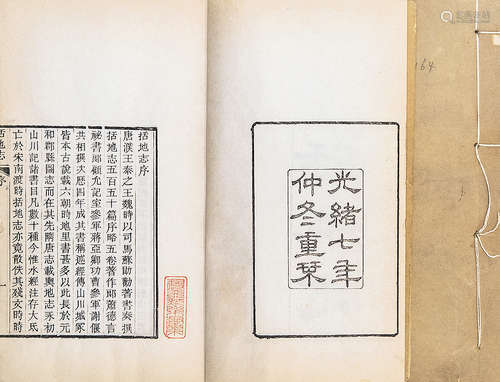 光緒七年
仲冬重栞
164
括地志序
唐濮王泰之王魏時以司馬蘇勗勸著書奏撰
括地志五百五十篇序略五卷著作郎蕭德言
祕書郎顧允記室參軍蔣亞卿功曹參軍謝偃
共相撰次歷四年成其書稱述經傳山川城冢
皆本古說載六朝時地里書甚多以此長於元
和郡縣圖志而在其先隋唐志載輿地志家初
山川記諸書目凡數十種今惟水經注存大氐
亡於宋南渡時括地志亦竟散佚其殘文時時
括地志
序
一